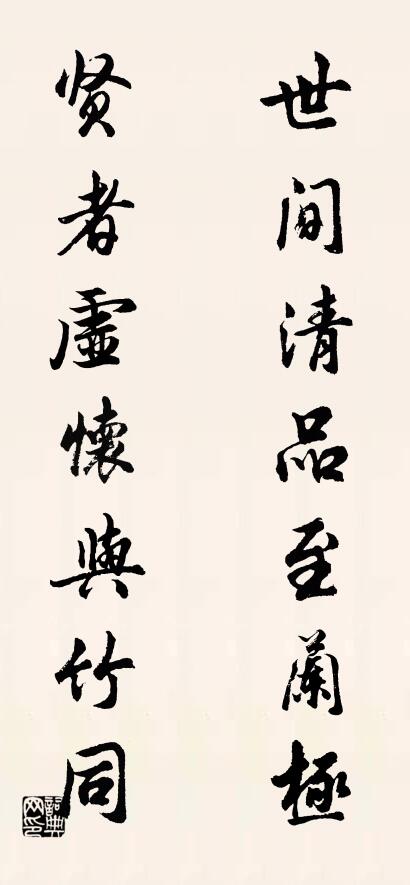 世间清品至蘭極
贤者虛懷與竹同